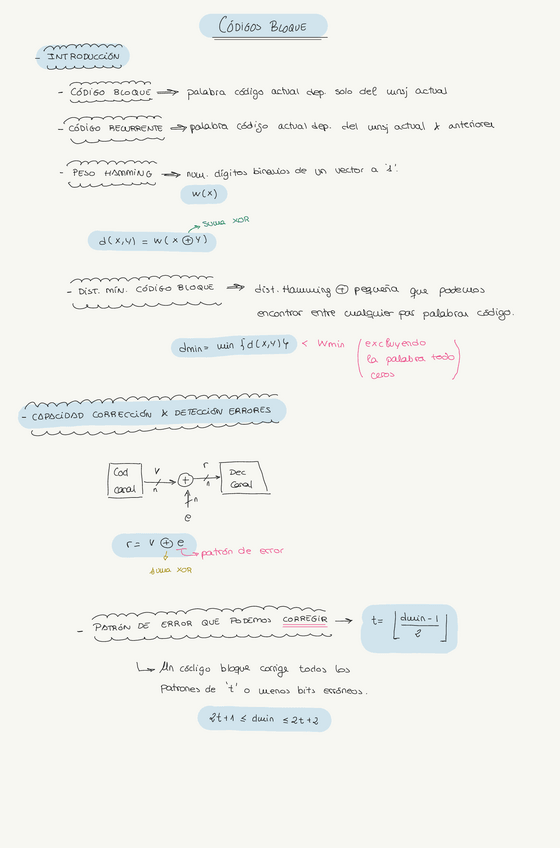 CÓDIGOS BLOQUE
- INTRODUCCIÓN
- CÓDIGO BLOQUE ⟹ palabra código actual dep. solo del msj actual
- CÓDIGO RECURRENTE ⟹ palabra código actual dep. del msj actual & anteriores
- PESO HAMMING ⟹ num. dígitos binarios de un vector a '1'.
w(x)
suma XOR
d(x,y) = w(x ⊕ y)
- DIST. MÍN. CÓDIGO BLOQUE ⟹ dist. Hamming ⊕ pequeña que podemos
encontrar entre cualquier par palabras código.
dmin = min {d(x,y)} < Wmin (excluyendo
la palabra todo
ceros)
- CAPACIDAD CORRECCIÓN & DETECCIÓN ERRORES
Cod canal
v
n
+
r
n
Dec Canal
n
e
r = v ⊕ e
patrón de error
suma XOR
- PATRÓN DE ERROR QUE PODEMOS CORREGIR → t = ⌊(dmin - 1)/2⌋
↳ Un código bloque corrige todos los
patrones de 't' o menos bits erróneos.
2t+1 ≤ dmin ≤ 2t+2